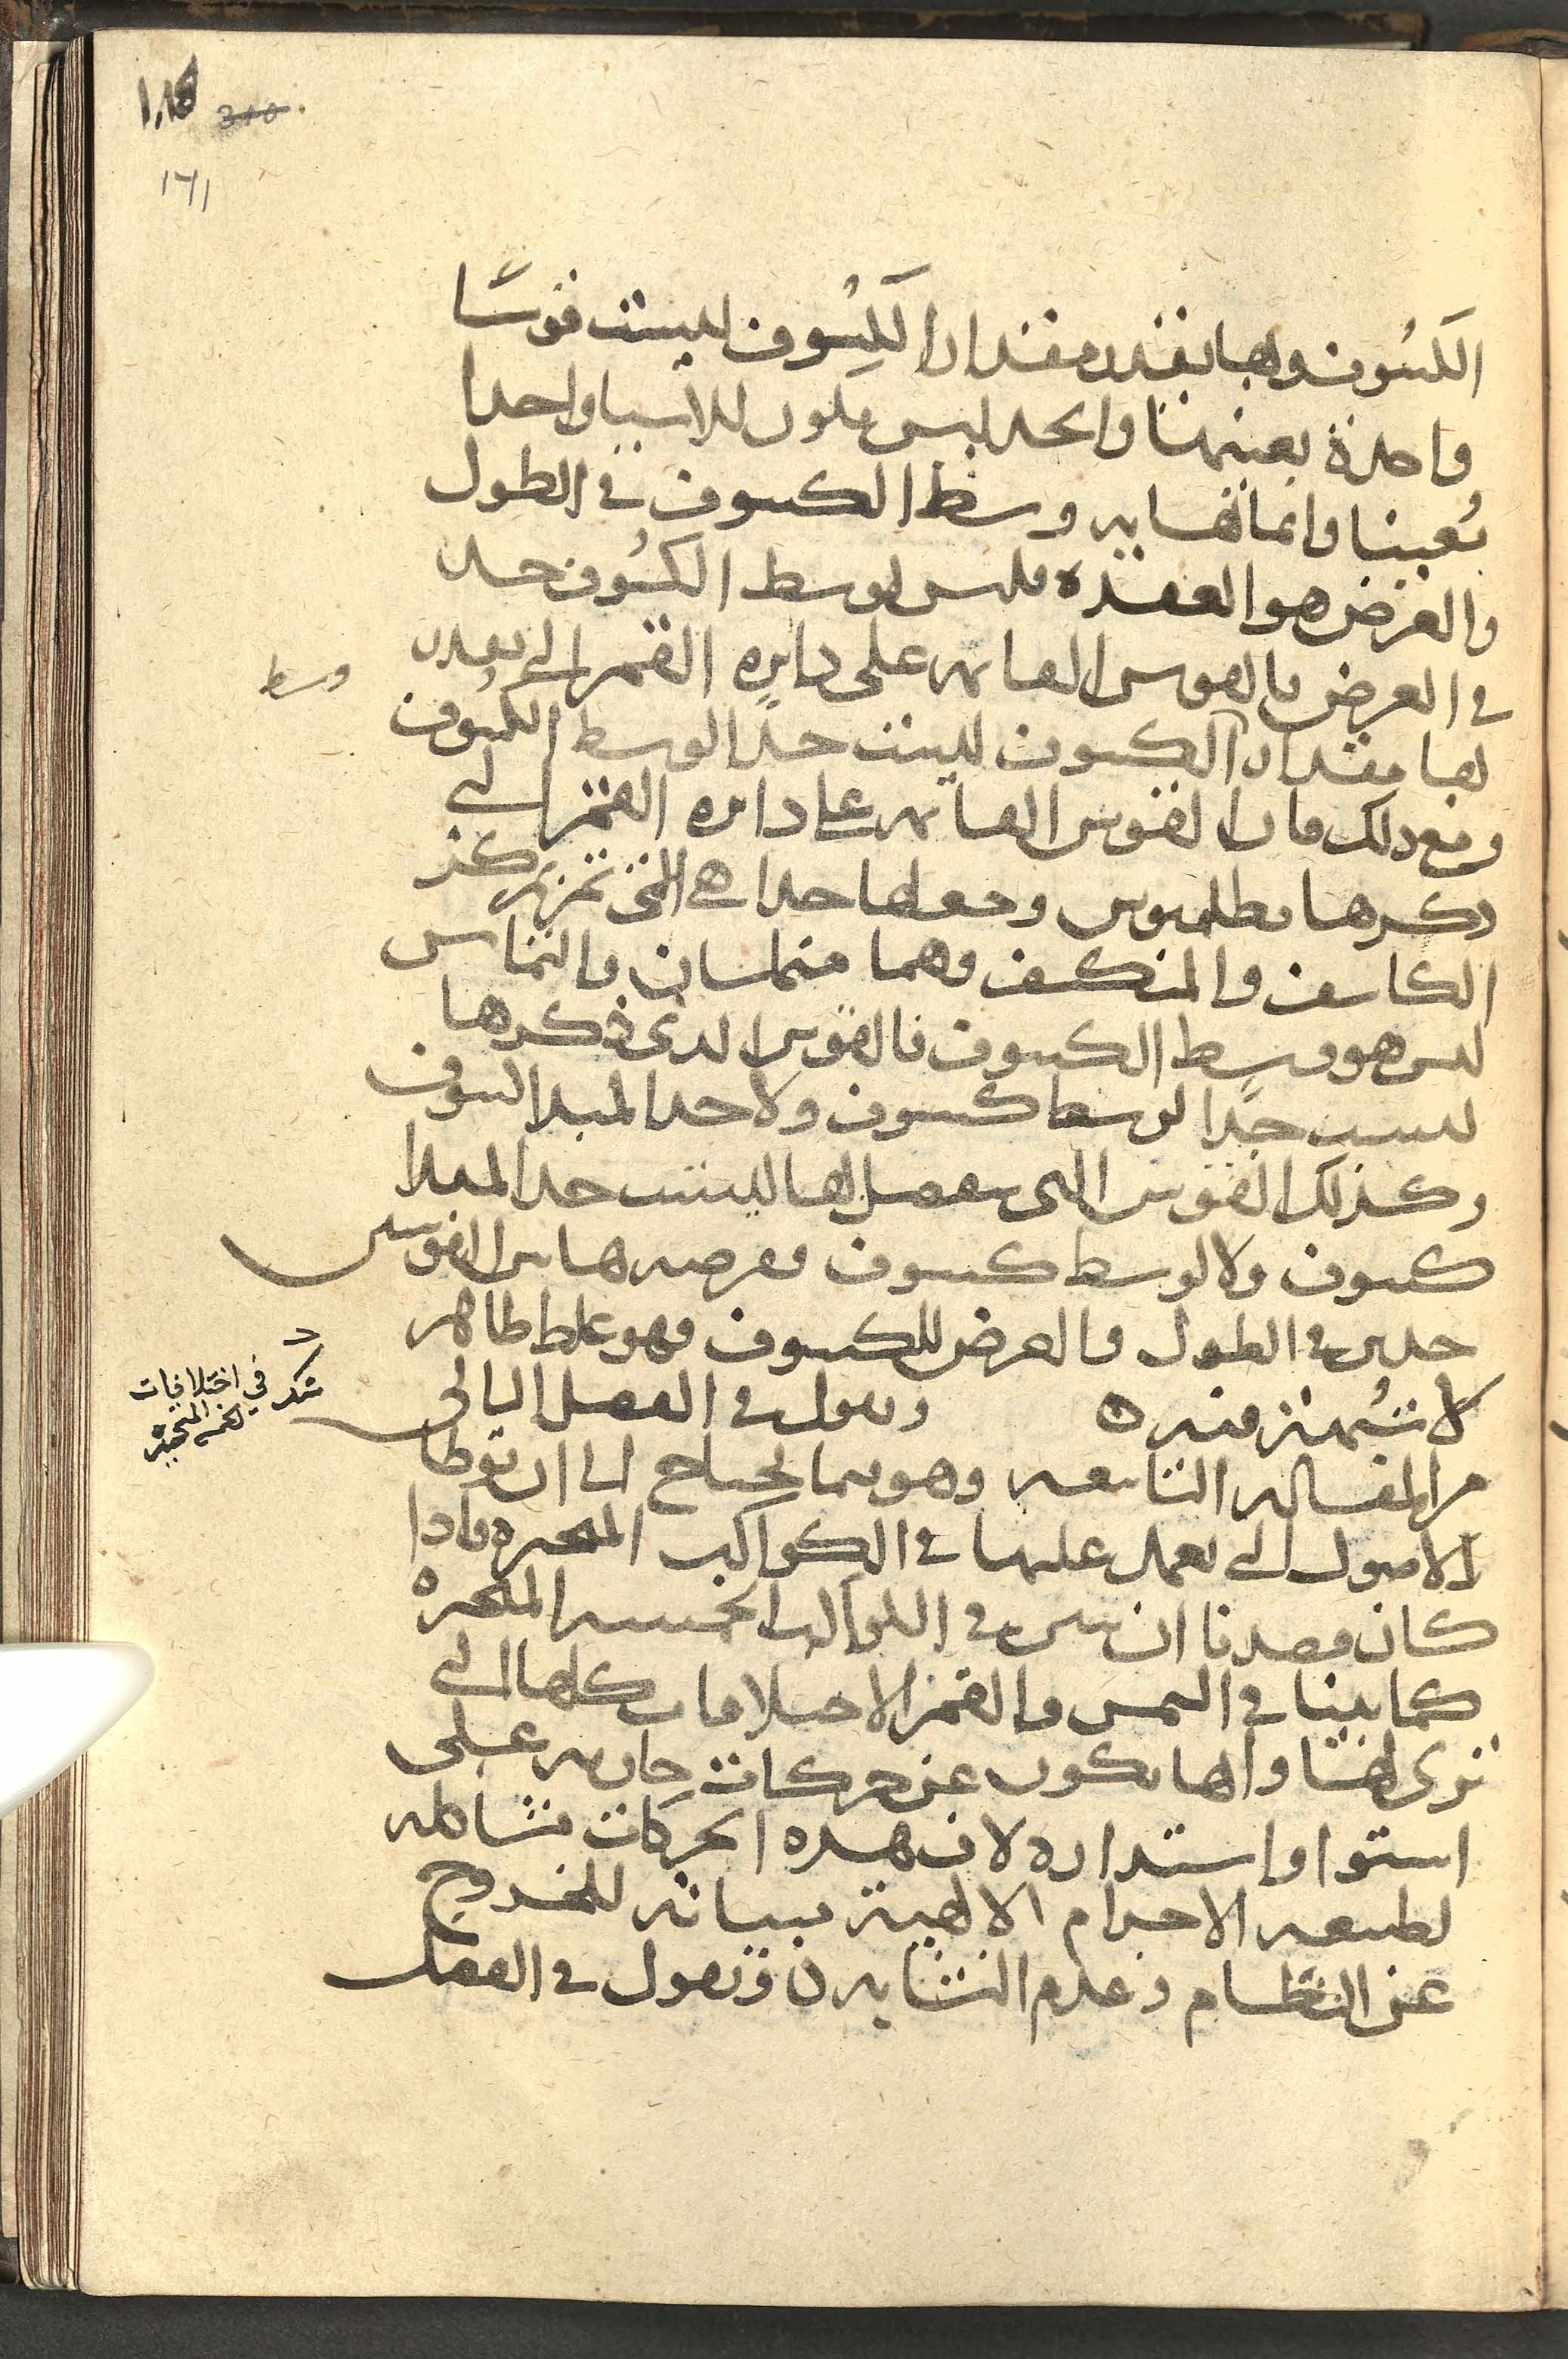 ١٨ 310
١٦١
الكسوف وبها يتقدر مقدار الكسوف ليست قوسًا
واحدة بعينها والحد ليس يكون للاشيا واحدا
بعينها وانما نهاية وسط الكسوف في الطول
والعرض هو العقدة فليس لوسط الكسوف حد
في العرض فالقوس القايمة على دايره القمر التي يتقدر
وسط
بها مقدار الكسوف ليست حدًا لوسط الكسوف
ومع ذلك فان القوس القايمة على دايره القمر التي
ذكرها بطلميوس وجعلها حدا هي التي تمر بمركز
الكاسف والمنكسف وهما متماسان والتماس
ليس هو وسط الكسوف فالقوس الذي ذكرها
ليست حدًا لوسط كسوف ولا حدا لمبدا كسوف
وكذلك القوس التي يفصلها ليست حدا لمبدا
كسوف ولا لوسط كسوف ففرضه هاتين القوسين
حدين في الطول والعرض للكسوف فهو غلط ظاهر
لا شبهة فيه ه ويقول في الفصل الثاني
شك في اختلافات
الخمسة المتحيرة
من المقالة التاسعة وهو فيما يحتاج الى ان يوطا
الاصول التي يعمل عليها في الكواكب المتحيرة واذا
كان قصدنا ان نبين في الكواكب الخمسة المتحيرة
كما بينا في الشمس والقمر الاختلافات كلها التي
ترى لها وانها تكون عن حركات جارية على
استوا واستدارة لان هذه الحركات مشاكلة
لطبيعة الاجرام الالهية مباينة للخروج
عن النظام وعدم التشابه ن ونقول في الفصل